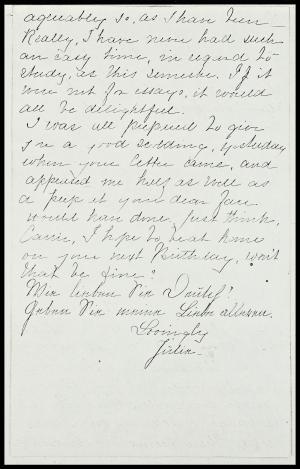 agreeably so, as I have been
Really, I have never had such
an easy time, in regard to
study, as this semester. If it
were not for essays, it would
all be delightful.
I was all prepared to give
you a good scolding, yesterday
when your letter came, and
appeased me half as well as
a peep at your dear face
would have done. Just think,
Carrie, I hope to be at home
on your next Birthday, won't
that be fine?
Wie lieben Sie Deutsch?
Geben Sie meine Liebe allen.
Lovingly
Julia.